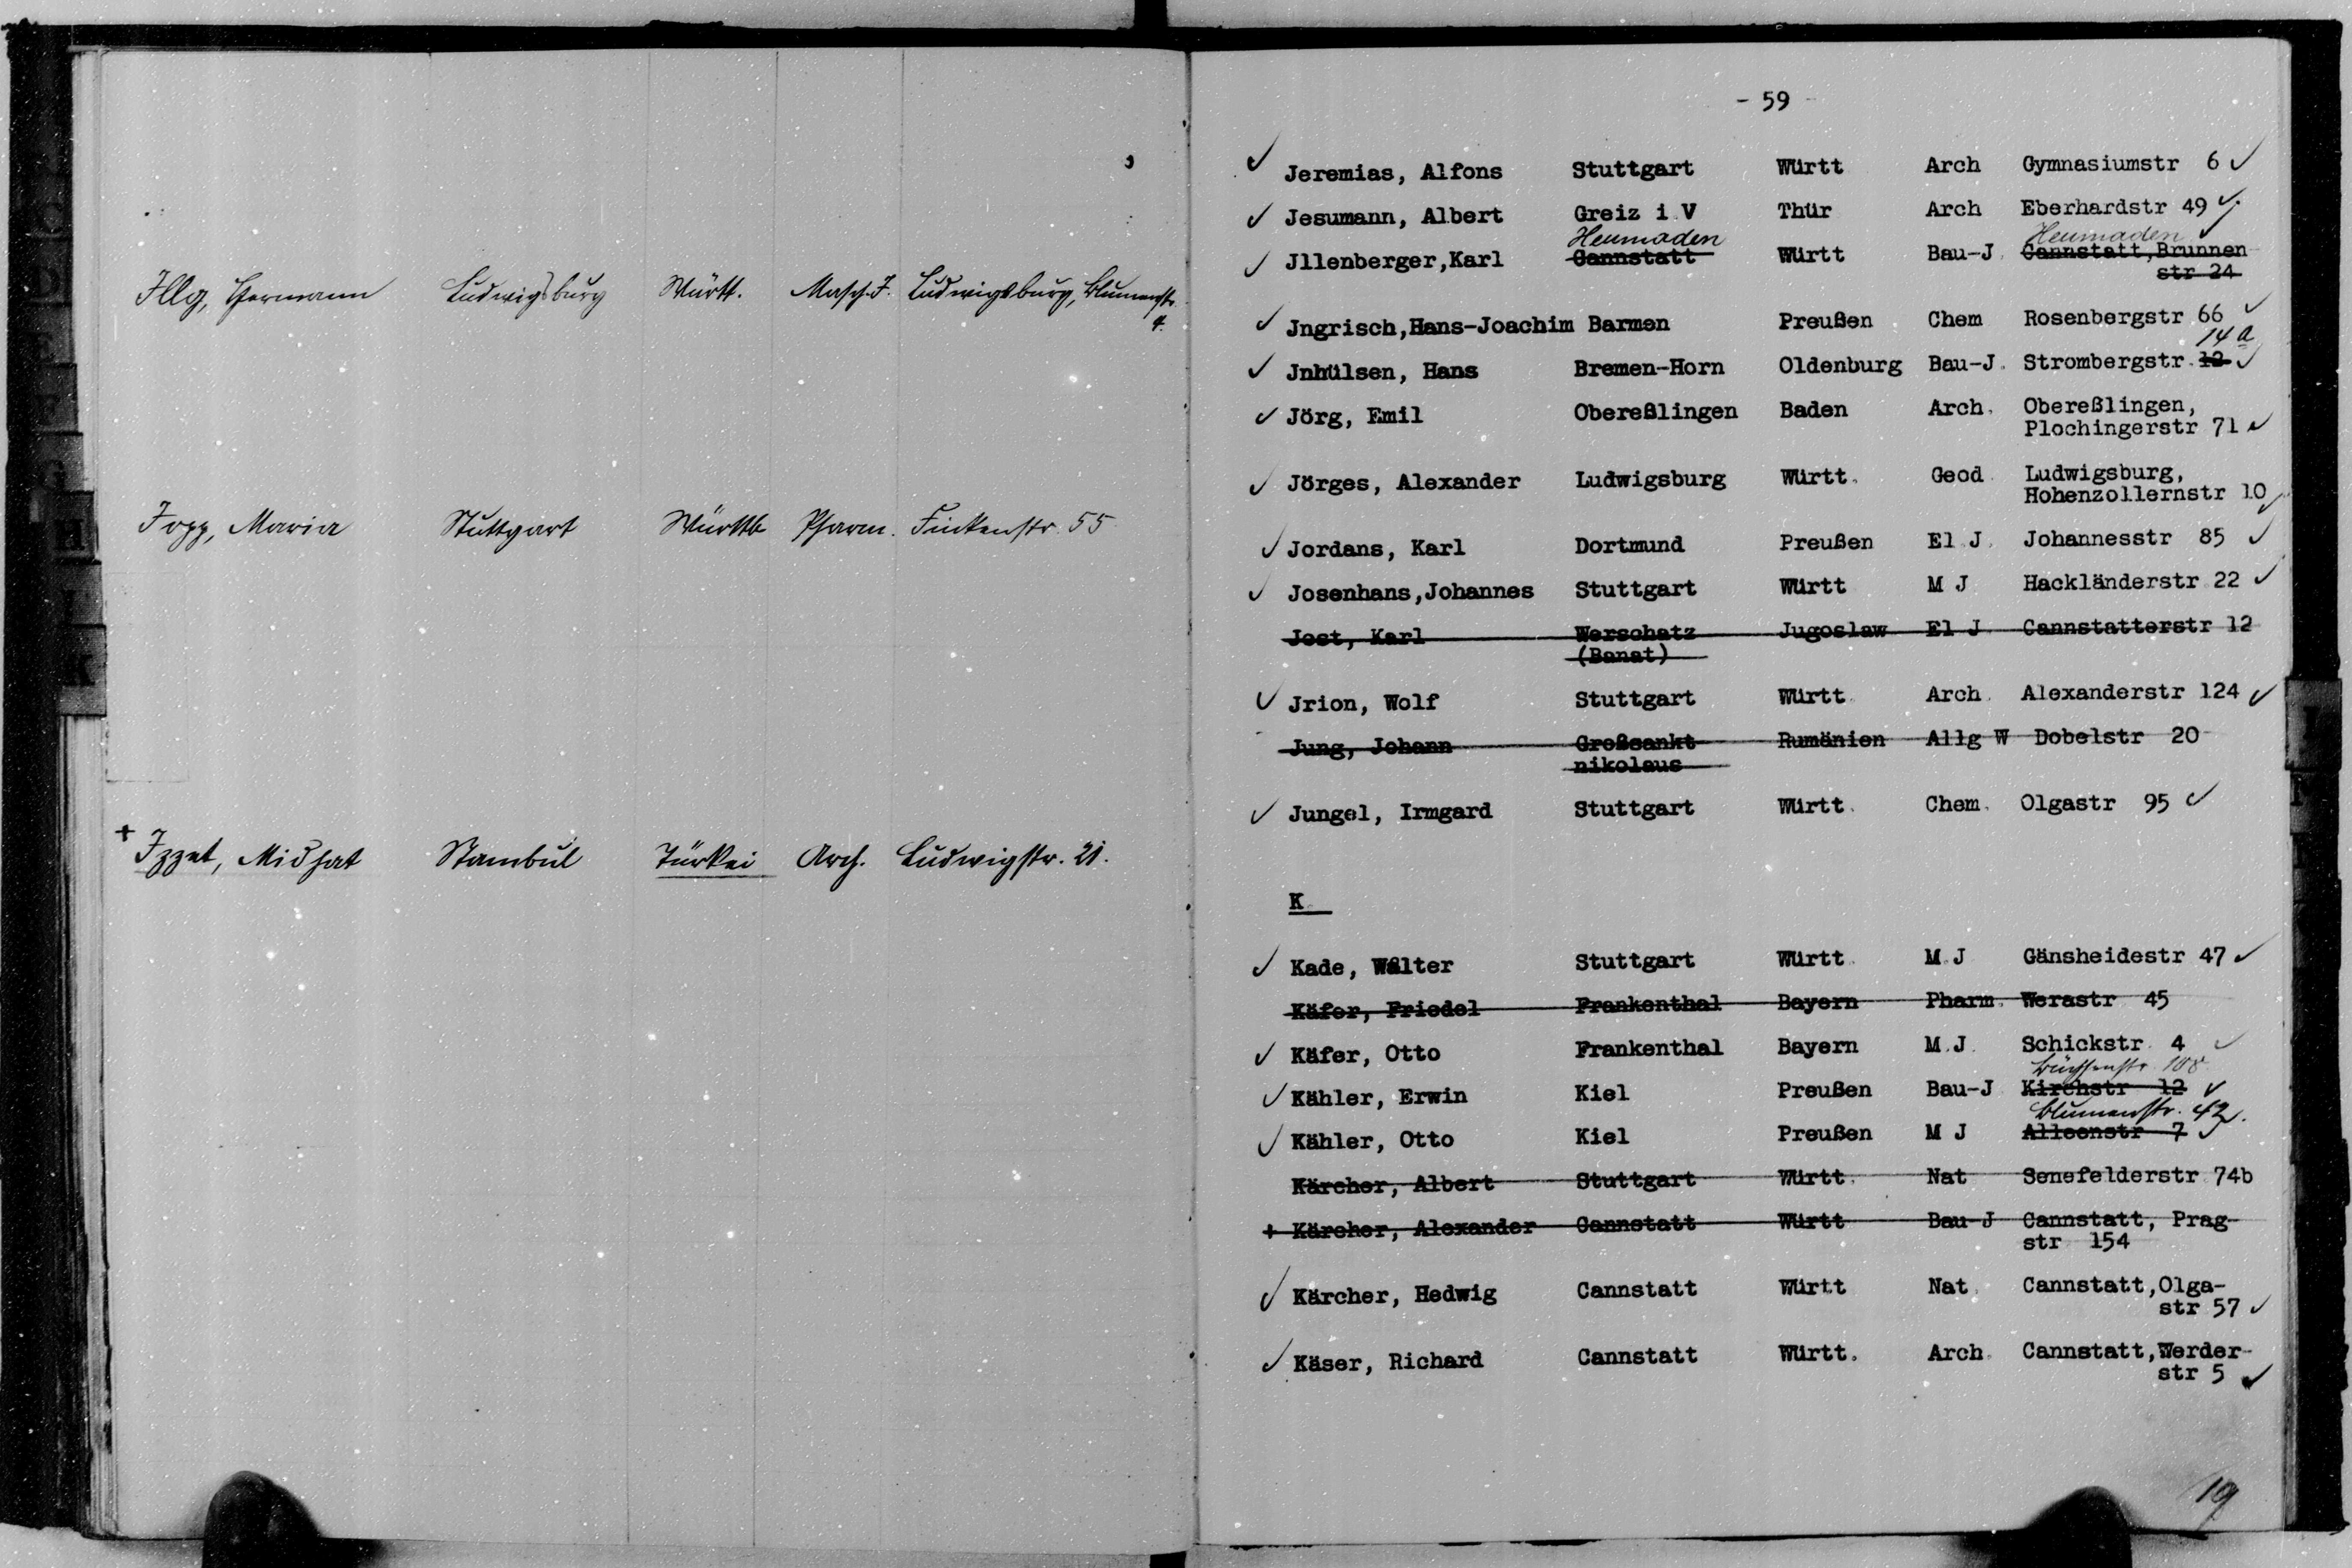 Illg, Hermann Ludwigsburg Württ. Masch. I. Ludwigsburg, Blumenstr.
4.
Jopp, Maria Stuttgart Württb Pharm. Finkenstr. 55
+ Izzet, Midhat Stambul Türkei Arch. Ludwigstr. 21.
- 59 -
✓ Jeremias, Alfons Stuttgart Württ Arch Gymnasiumstr 6 ✓
✓ Jesumann, Albert Greiz i V Thür Arch Eberhardstr 49 ✓
Heumaden Heumaden ✓
✓ Jllenberger,Karl Cannstatt Württ Bau-J Cannstatt,Brunnen
str 24
✓ Jngrisch,Hans-Joachim Barmen Preußen Chem Rosenbergstr 66 ✓
14 a
✓ Jnhülsen, Hans Bremen-Horn Oldenburg Bau-J. Strombergstr 12 ✓
✓ Jörg, Emil Obereßlingen Baden Arch. Obereßlingen,
Plochingerstr 71 ✓
✓ Jörges, Alexander Ludwigsburg Württ. Geod Ludwigsburg,
Hohenzollernstr 10 ✓
✓ Jordans, Karl Dortmund Preußen El J. Johannesstr 85 ✓
✓ Josenhans,Johannes Stuttgart Württ M J Hackländerstr 22 ✓
Jost, Karl Werschatz Jugoslaw El J Cannstatterstr 12
(Banat)
✓ Jrion, Wolf Stuttgart Württ Arch. Alexanderstr 124 ✓
Jung, Johann Großsankt Rumänien Allg W Dobelstr 20
nikolaus
✓ Jungel, Irmgard Stuttgart Württ. Chem. Olgastr 95 ✓
K
✓ Kade, Walter Stuttgart Württ M.J Gänsheidestr 47 ✓
Käfer, Friedel Frankenthal Bayern Pharm. Werastr 45
✓ Käfer, Otto Frankenthal Bayern M.J. Schickstr. 4 ✓
Büchsenstr. 108
✓ Kähler, Erwin Kiel Preußen Bau-J Kirchstr 12 ✓
Blumenstr. 42.
✓ Kähler, Otto Kiel Preußen M J Alleenstr 7 ✓
Kärcher, Albert Stuttgart Württ. Nat Senefelderstr 74b
+ Kärcher, Alexander Cannstatt Württ Bau-J Cannstatt, Prag-
str 154
✓ Kärcher, Hedwig Cannstatt Württ Nat. Cannstatt,Olga-
str 57 ✓
✓ Käser, Richard Cannstatt Württ. Arch. Cannstatt,Werder-
str 5 ✓
19